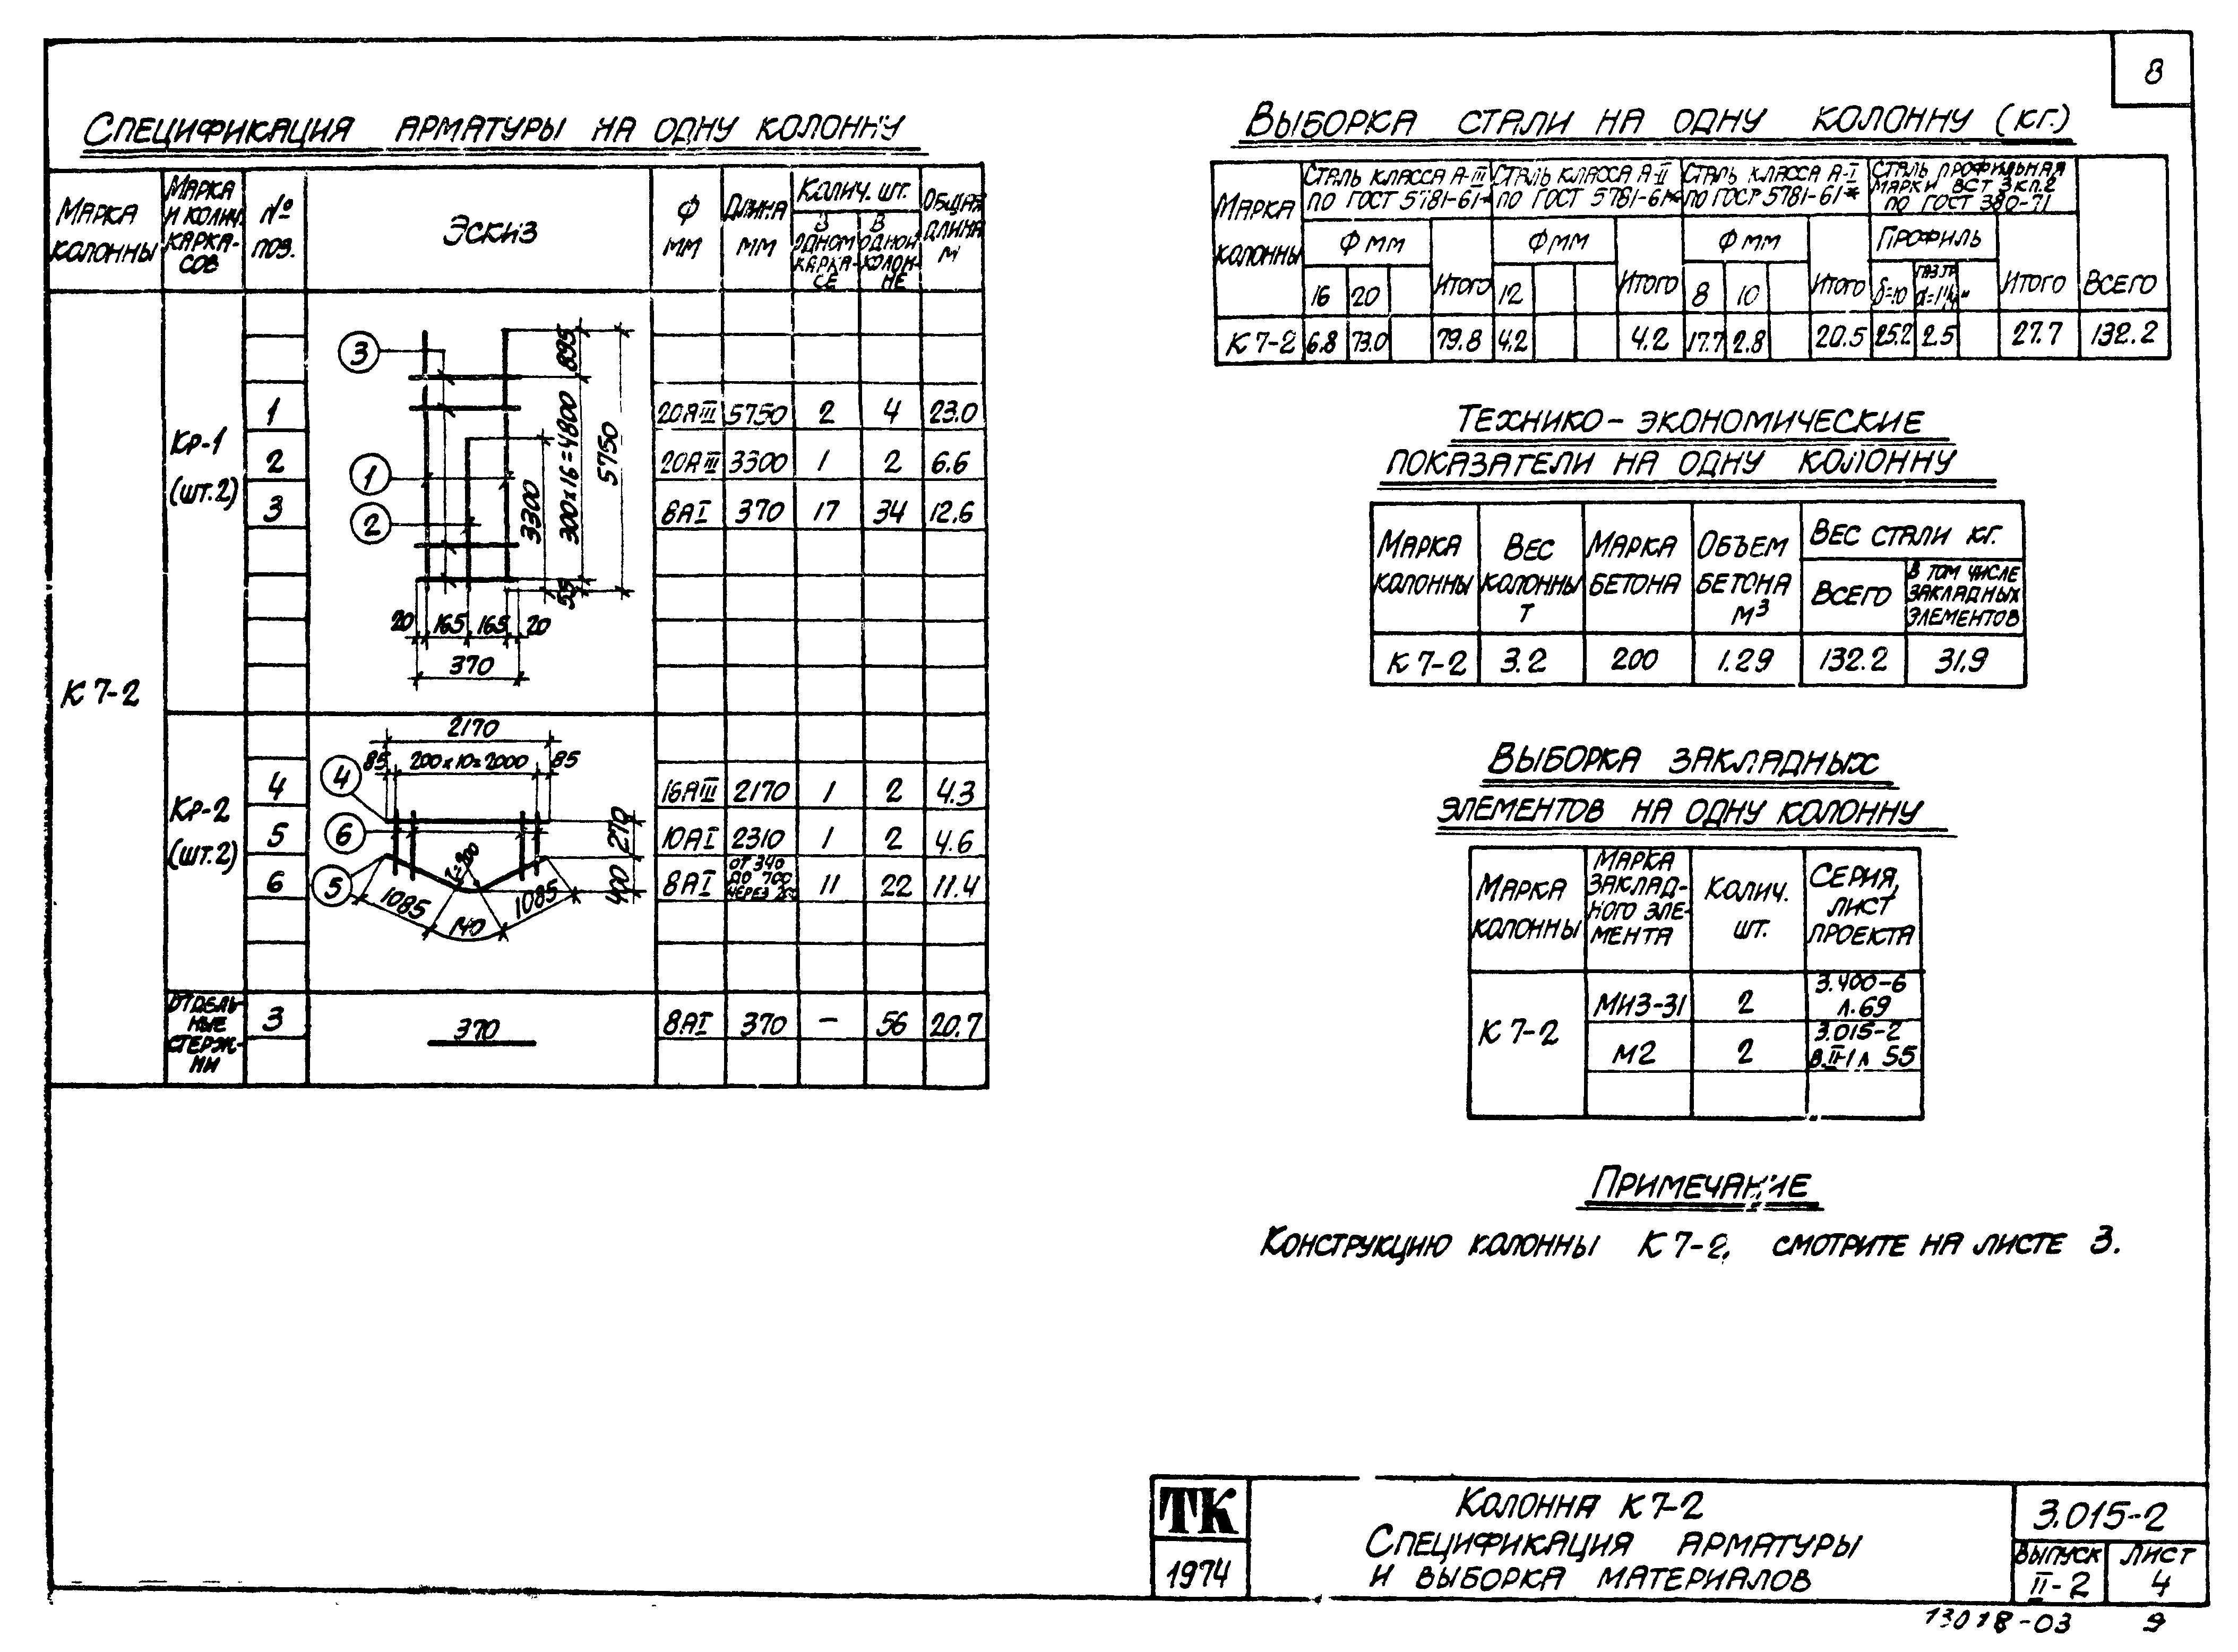 8
Спецификация арматуры на одну колонну
Марка колонны
Марка и колич. каркасов
№ поз.
Эскиз
Ф мм
Длина мм
Колич. шт.
В одном каркасе
В одной колонне
Общая длина м
К 7-2
Кр-1 (шт.2)
1 20АIII 5750 2 4 23.0
2 20АIII 3300 1 2 6.6
3 8АI 370 17 34 12.6
3
1
2
895
300×16=4800
5750
3300
55
20 165 165 20
370
Кр-2 (шт.2)
4 16АIII 2170 1 2 4.3
5 10АI 2310 1 2 4.6
6 8АI от 340 до 700 через 11 22 11.4
2170
85 200×10=2000 85
4
6
5
270
400
1085 140 1085
Отдельные стержни
3 370 8АI 370 – 56 20.7
Выборка стали на одну колонну (кг.)
Марка колонны
Сталь класса А-III по ГОСТ 5781-61*
Сталь класса А-II по ГОСТ 5781-61*
Сталь класса А-I по ГОСТ 5781-61*
Сталь профильная марки ВСТ 3кп.2 по ГОСТ 380-71
Всего
Ф мм Итого Ф мм Итого Ф мм Итого Профиль Итого
16 20 12 8 10 δ=10
К 7-2 6.8 73.0 79.8 4.2 4.2 17.7 2.8 20.5 25.2 2.5 27.7 132.2
Технико-экономические
показатели на одну колонну
Марка колонны
Вес колонны т
Марка бетона
Объем бетона м³
Вес стали кг.
Всего
В том числе закладных элементов
К 7-2 3.2 200 1.29 132.2 31.9
Выборка закладных
элементов на одну колонну
Марка колонны
Марка закладного элемента
Колич. шт.
Серия, лист проекта
К 7-2
МИ3-31 2 3.400-6 л.69
М2 2 3.015-2 в.II-1 л 55
Примечание
Конструкцию колонны К 7-2, смотрите на листе 3.
ТК
1974
Колонна К7-2
Спецификация арматуры
и выборка материалов
3.015-2
Выпуск II-2
Лист 4
13018-03 9